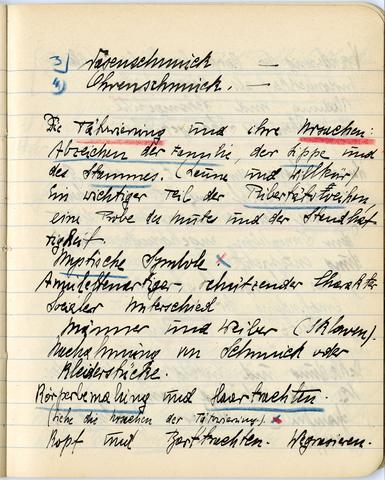 3) Nasenschmuck —
4) Ohrenschmuck. —
Die Tätowierung und ihre Ursachen:
Abzeichen der Familie, der Sippe und
des Stammes. (Laune und Willkür)
Ein wichtiger Teil der Pubertätsweihen,
eine Probe des Mutes und der Standhaf
tigkeit.
Mystische Symbole x
Amulettenartiger schützender Charakter
Sozialer Unterschied
Männer und Weiber (Sklaven).
Nachahmung von Schmuck oder
Kleiderstücke.
Körperbemalung und Haartrachten.
(siehe die Ursachen der Tätowierung.) x
Kopf und Barttrachten. Wegrasieren.